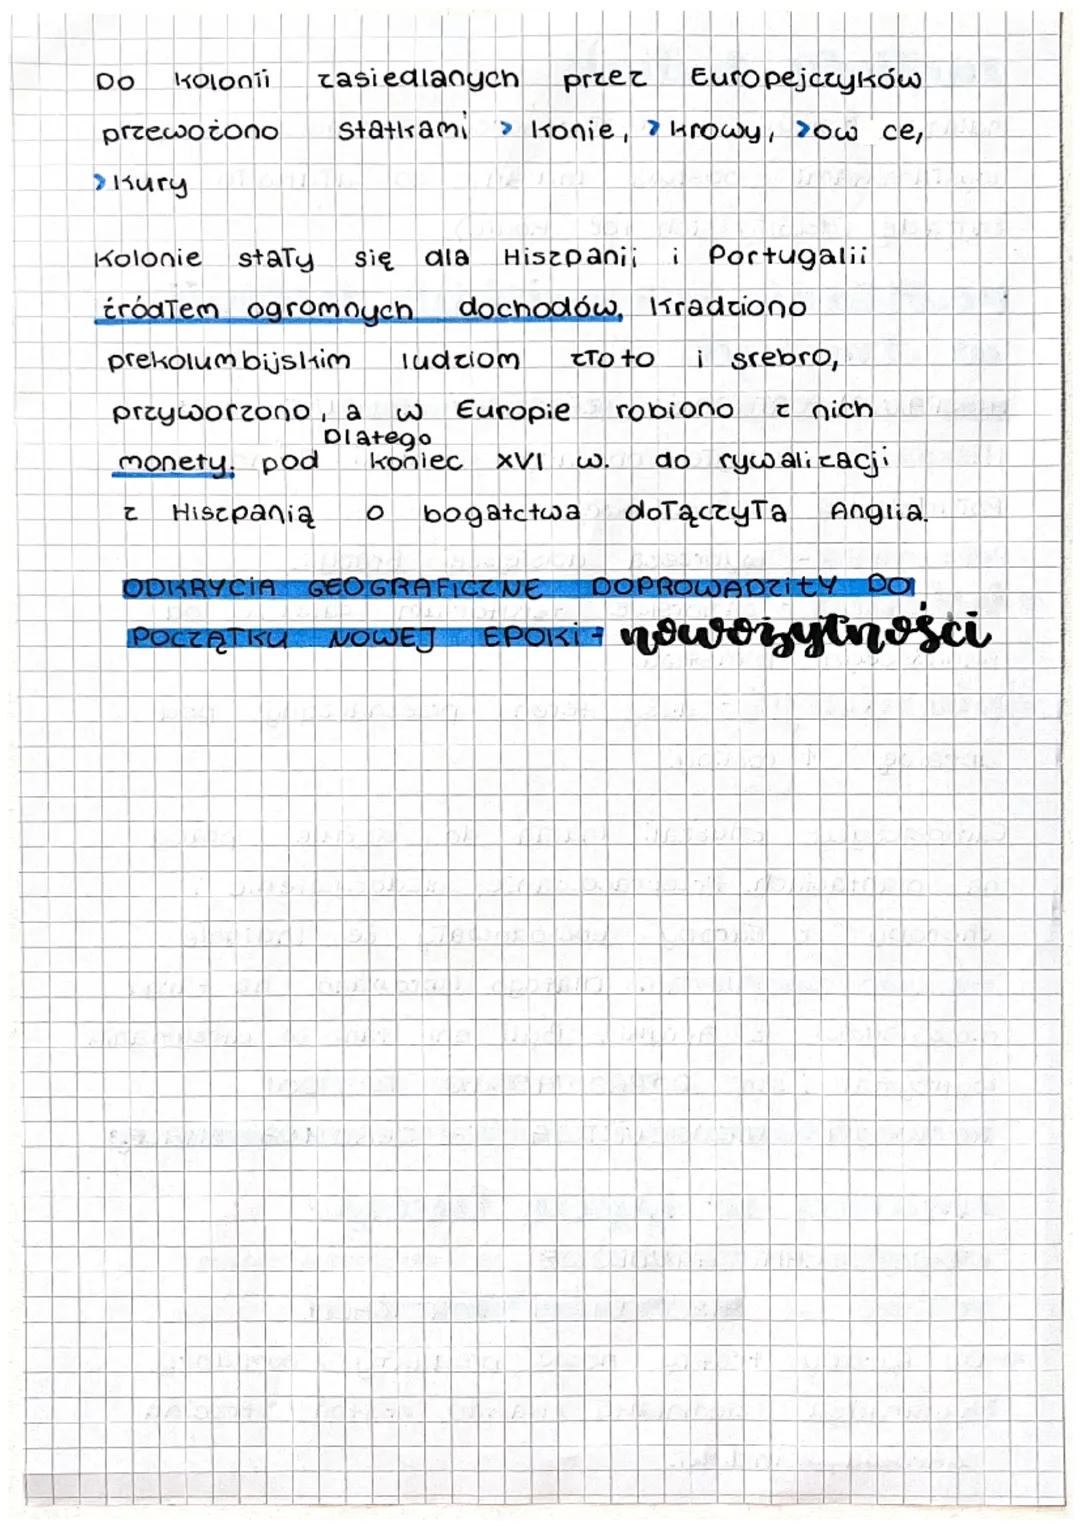 Do kolonii zasiedlanych przez Europejczyków
przewożono statkami > konie, > krowy, > ow ce,
> kury
Kolonie stały się dla Hiszpanii i Portugalii
źródłem ogromnych dochodów. Kradziono
prekolumbijskim ludziom złoto i srebro,
przyworzono, a w Europie robiono z nich
Dlatego
monety. pod koniec XVI w. do rywalizacji
z Hiszpanią o bogatctwa dołączyła Anglia.
ODKRYCIA GEOGRAFICZNE DOPROWADZIŁY DO
POCZĄTKU NOWEJ EPOKI - nowożytności